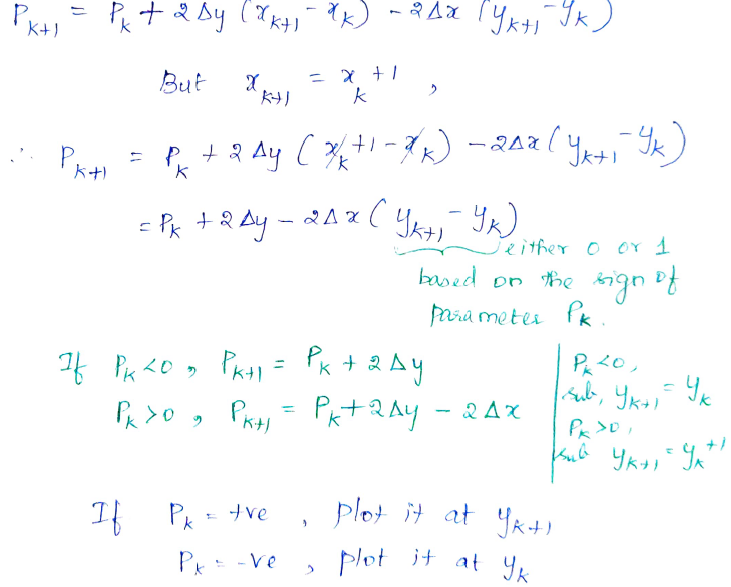 P_{k+1} = P_k + 2Δy (x_{k+1} - x_k) - 2Δx (y_{k+1} - y_k)
But x_{k+1} = x_k + 1 ,
∴ P_{k+1} = P_k + 2Δy (x_k + 1 - x_k) - 2Δx (y_{k+1} - y_k)
= P_k + 2Δy - 2Δx (y_{k+1} - y_k)
either 0 or 1
based on the sign of
parameter P_k.
If P_k < 0 , P_{k+1} = P_k + 2Δy
P_k > 0 , P_{k+1} = P_k + 2Δy - 2Δx
P_k < 0,
sub, y_{k+1} = y_k
P_k > 0,
sub y_{k+1} = y_k + 1
If P_k = +ve , plot it at y_{k+1}
P_k = -ve , plot it at y_k